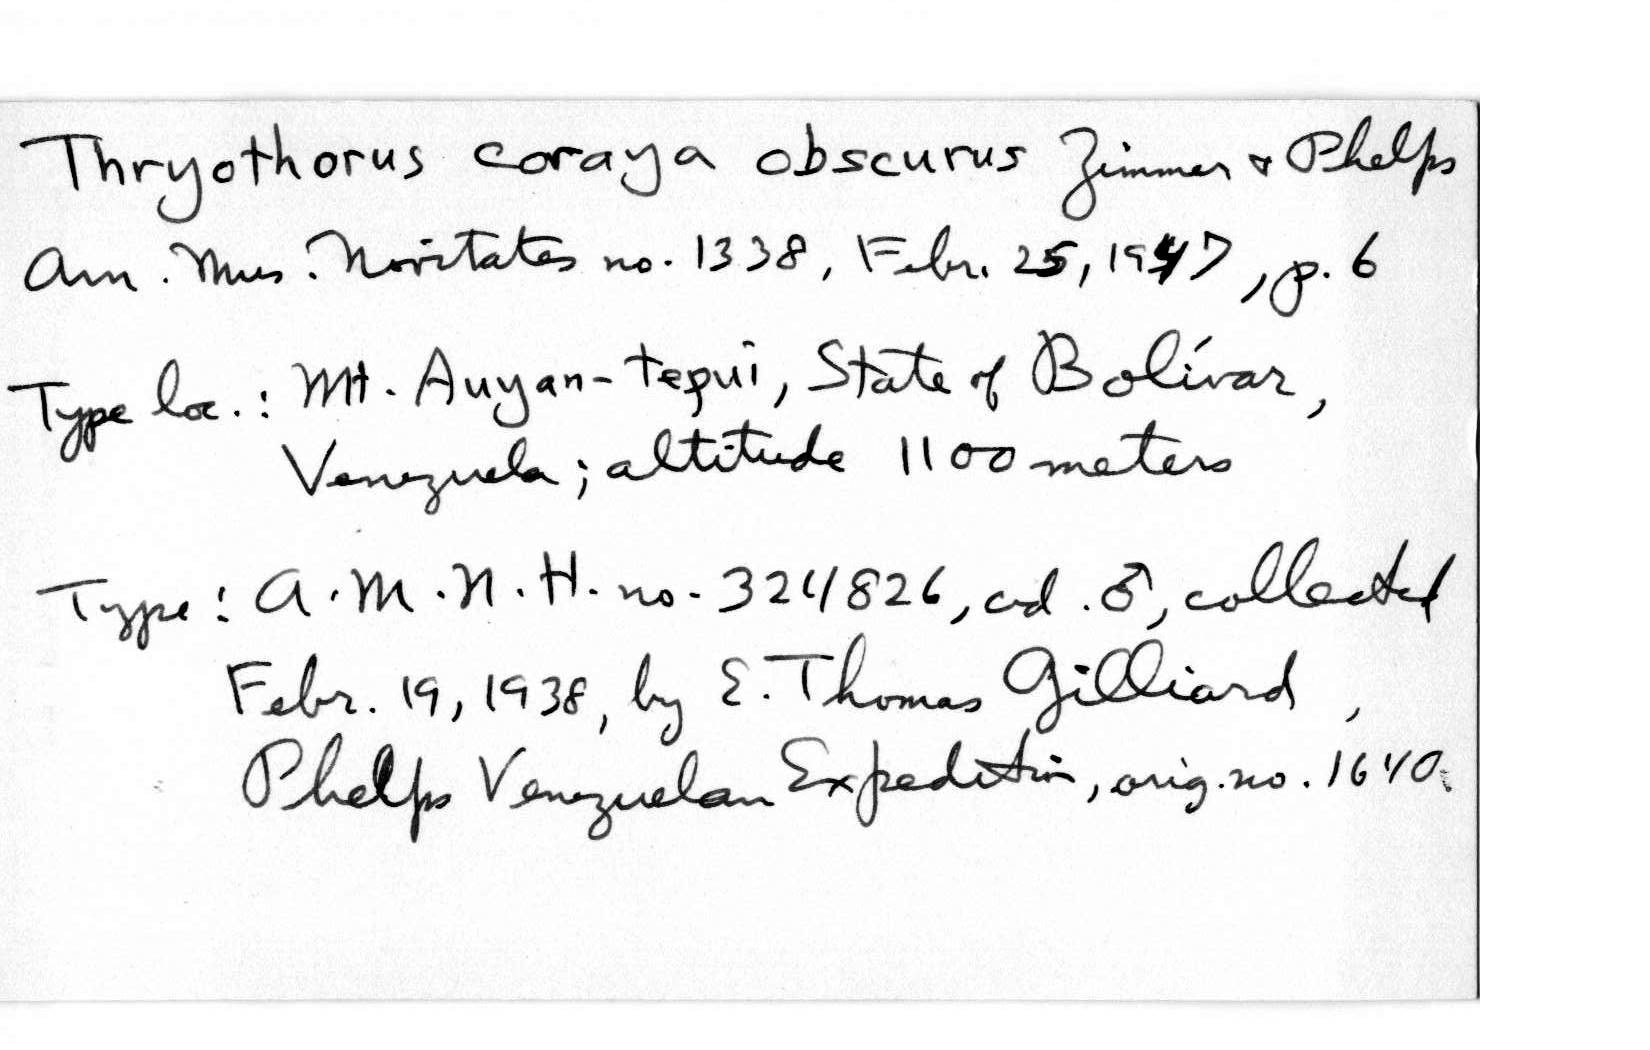 Thryothorus coraya obscurus Zimmer & Phelps
Am. Mus. Novitates no. 1338, Febr. 25, 1947, p. 6
Type loc.: Mt. Auyan-tepui, State of Bolívar,
Venezuela; altitude 1100 meters
Type: A.M.N.H. no. 324826, ad. ♂, collected
Febr. 19, 1938, by E. Thomas Gilliard,
Phelps Venezuelan Expedition, orig. no. 1640.